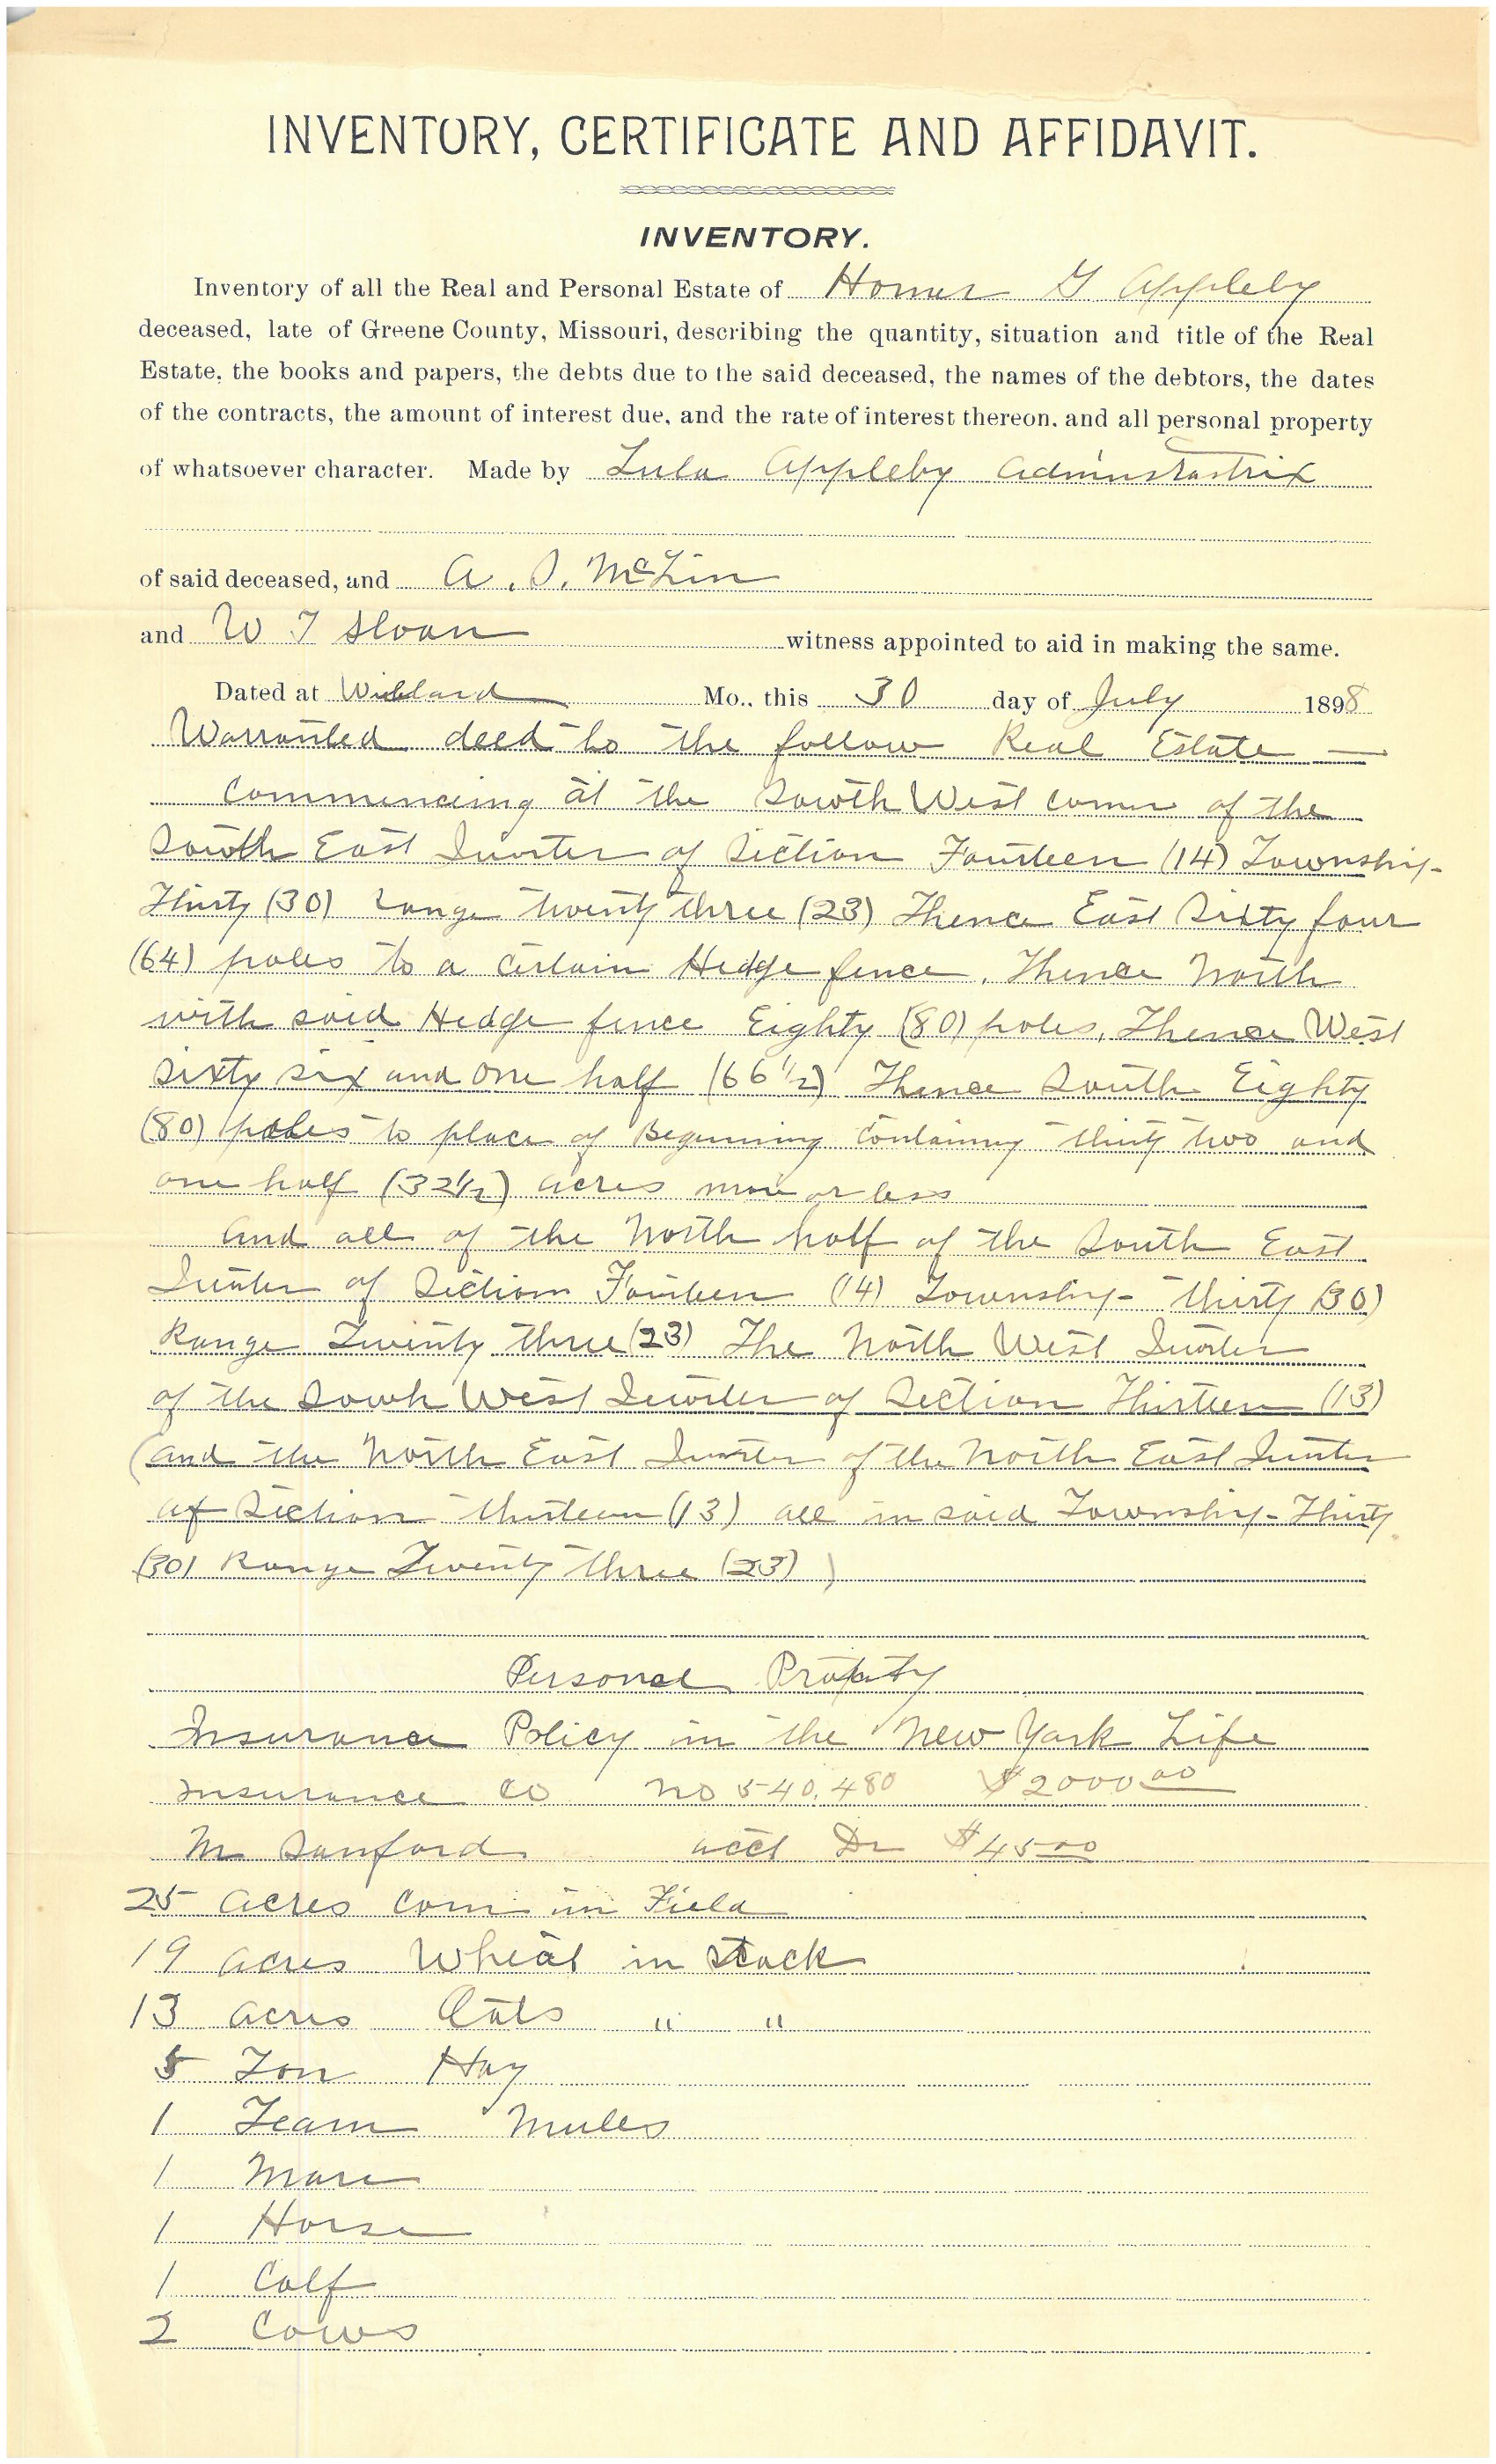 INVENTORY, CERTIFICATE AND AFFIDAVIT.
INVENTORY.
Inventory of all the Real and Personal Estate of Homer G Appleby
deceased, late of Greene County, Missouri, describing the quantity, situation and title of the Real
Estate, the books and papers, the debts due to the said deceased, the names of the debtors, the dates
of the contracts, the amount of interest due, and the rate of interest thereon, and all personal property
of whatsoever character. Made by Lula Appleby Adminstratrix
of said deceased, and A. S. McLin
and W T Sloan witness appointed to aid in making the same.
Dated at Willard Mo., this 30 day of July 1898
Warranted deed to the follow Real Estate —
Commencing at the South West corner of the
South East Quarter of Section Fourteen (14) Township
Thirty (30) range twenty three (23) Thence East Sixty four
(64) poles to a certain Hedge fence. Thence North
with said Hedge fence Eighty (80) poles, Thence West
Sixty six and one half (66 1/2) Thence South Eighty
(80) poles to place of Beginning Containing thirty two and
one half (32 1/2) acres more or less
And all of the North half of the South East
Quarter of Section Fourteen (14) Township thirty (30)
Range Twenty three (23) The North West Quarter
of the South West Quarter of Section Thirteen (13)
(and the North East Quarter of the North East Quarter
of Section thirteen (13) all in said Township Thirty
(30) Range Twenty three (23) )
Personal Property
Insurance Policy in the New York Life
Insurance Co No 540,480 $2000.00
M Sanford acct Dr $45.00
25 acres corn in Field
19 acres Wheat in Stack
13 acres Oats " "
5 Ton Hay
1 Team Mules
1 Mare
1 Horse
1 Calf
2 Cows